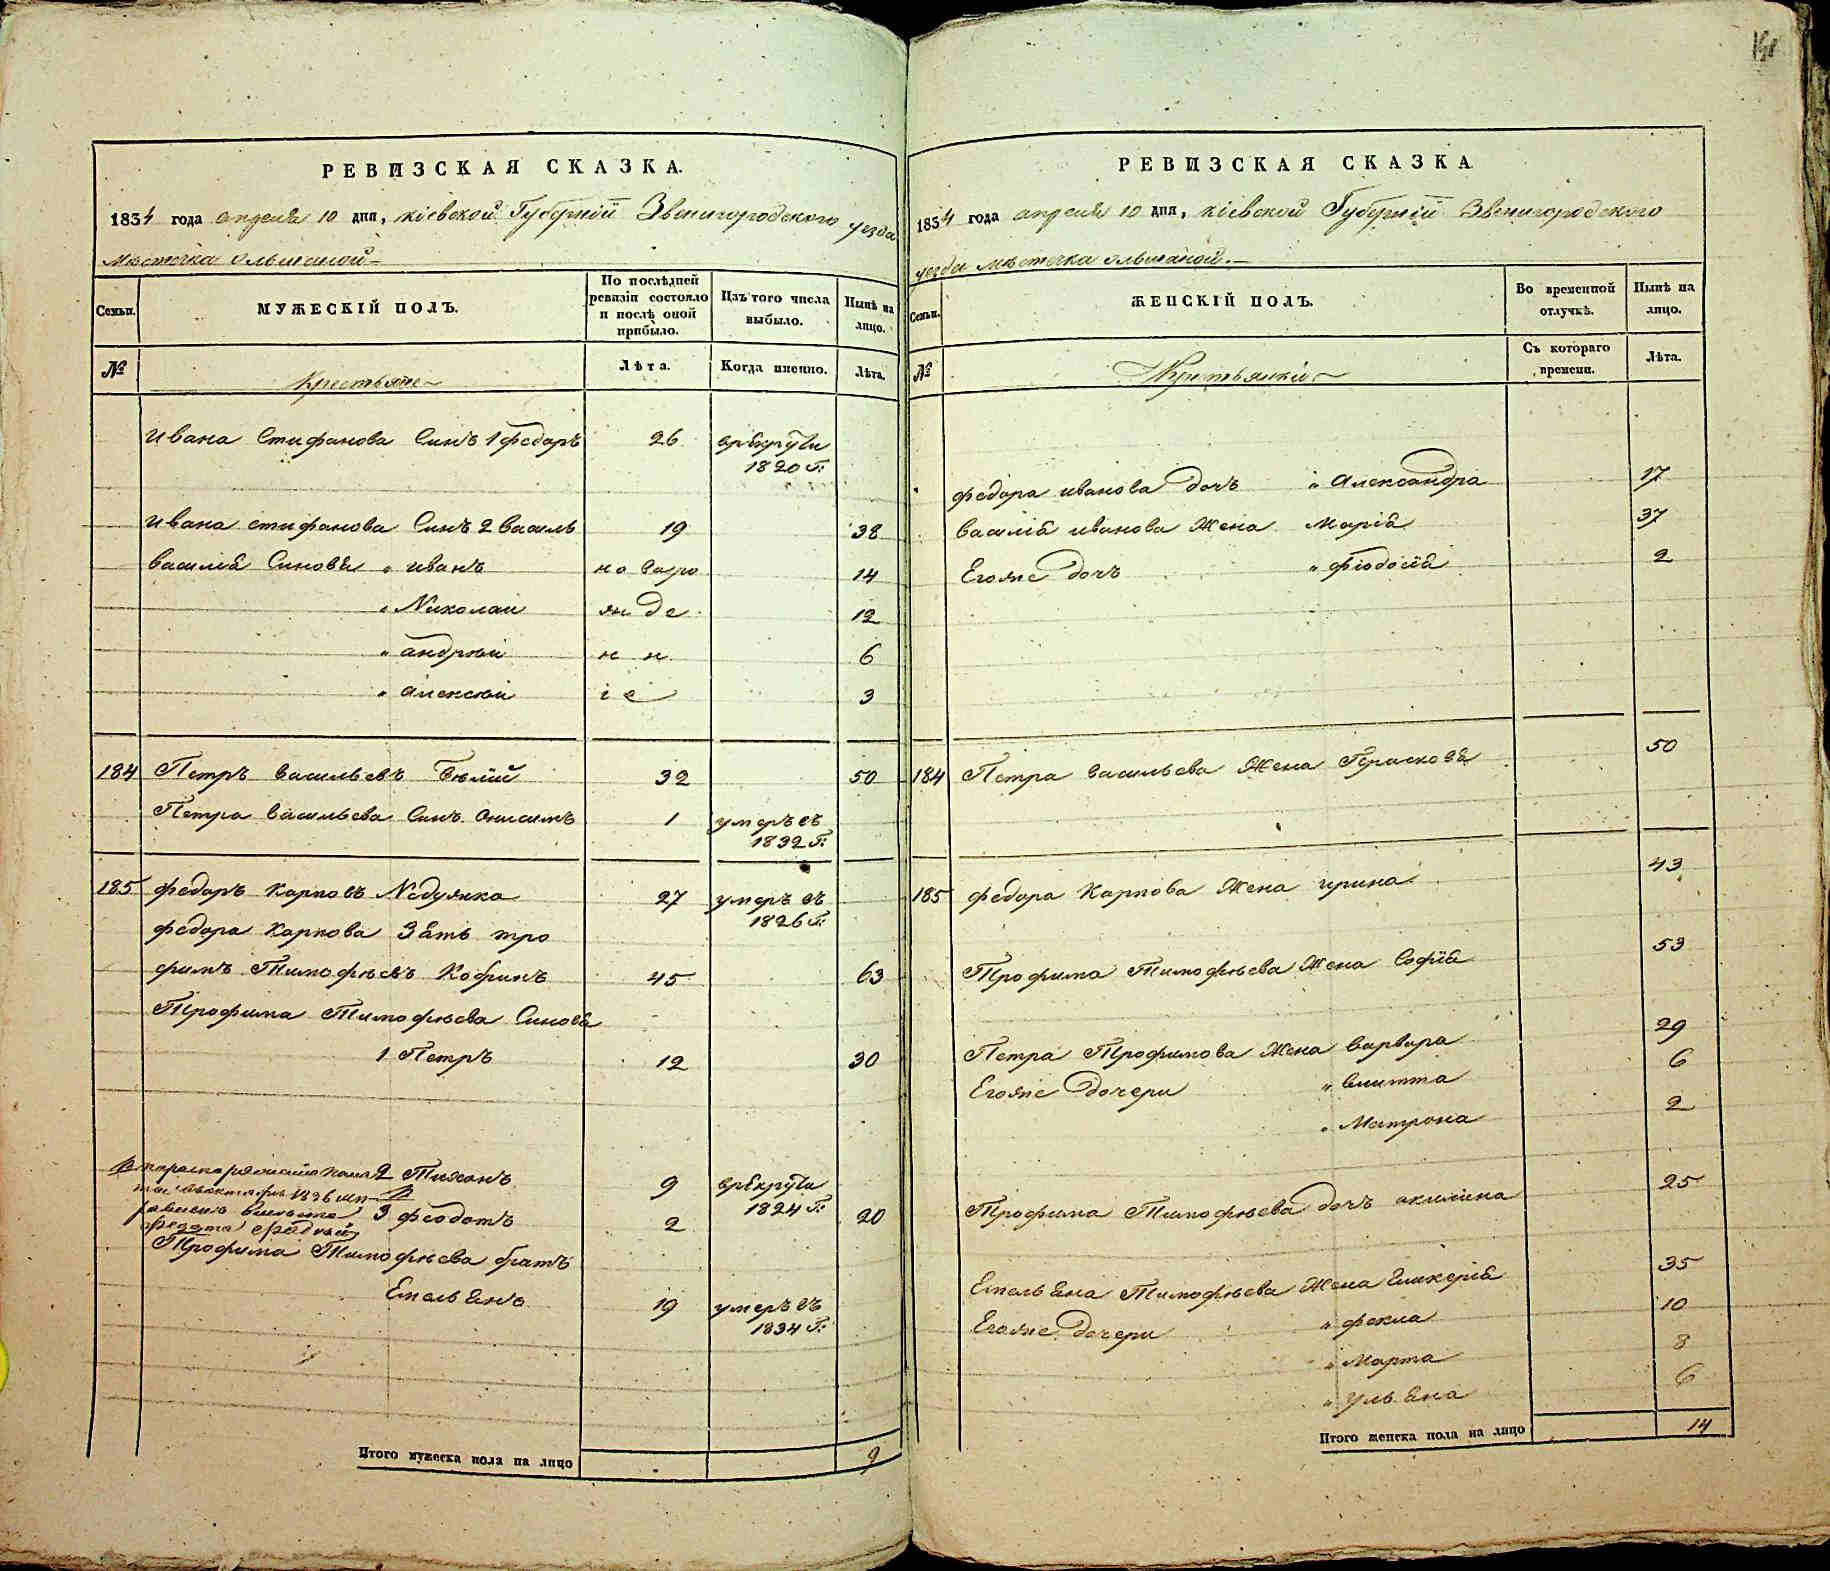 РЕВИЗСКАЯ СКАЗКА.
1834 года апреля 10 дня, кіевской Губерніи Звенигородского уезда
местечка ольшаной
Семьи.
МУЖЕСКІЙ ПОЛЪ.
По послѣдней ревизіи состояло и послѣ оной прибыло.
Изъ того числа выбыло.
Нынѣ на лицо.
№
Крестьяне
Лѣта.
Когда именно.
Лѣта.
ивана Стифанова Синъ 1 федоръ 26 врекруты
1820 г:
ивана стифанова Синъ 2 василь 19 38
василіа Синовья „ иванъ но варо 14
„ Николаи жде 12
„ андреи н н 6
„ алексеи іе 3
184 Петръ васильевъ Белій 32 50
Петра васильева Синъ Онисимъ 1 умеръ въ
1832 г:
185 федоръ Карповъ Недужка 27 умеръ въ
1826 г:
федора Карпова Зять тро
фимъ Тимофѣевъ Кобринъ 45 63
Трофима Тимофѣева Синова
1 Петръ 12 30
2 Тихонъ 9 врекруты
1824 г:
3 феодотъ 2 20
Трофима Тимофѣева братъ
Емельянъ 19 умеръ въ
1834 г:
Итого мужеска пола на лицо 9
РЕВИЗСКАЯ СКАЗКА
1834 года апреля 10 дня, кіевской Губерніи Звенигородского
уезда местечка ольшаной.
Семьи.
ЖЕНСКІЙ ПОЛЪ.
Во временной отлучкѣ.
Нынѣ на лицо.
№
Крестьянки
Съ котораго времени.
Лѣта.
федора иванова дочь „ Александра 17
василіа иванова Жена Маріа 37
Егоже дочь „ фіодосіа 2
184 Петра васильева Жена 50
185 федора Карпова Жена ирина 43
Трофима Тимофѣева Жена Софіа 53
Петра Трофимова Жена варвара 29
Егоже дочери 6
„ Матрона 2
Трофима Тимофѣева дочь акилина 25
Емельяна Тимофѣева Жена Гликеріа 35
Егоже дочери „ фекла 10
„ Марта 8
„ Ульяна 6
Итого женска пола на лицо 14